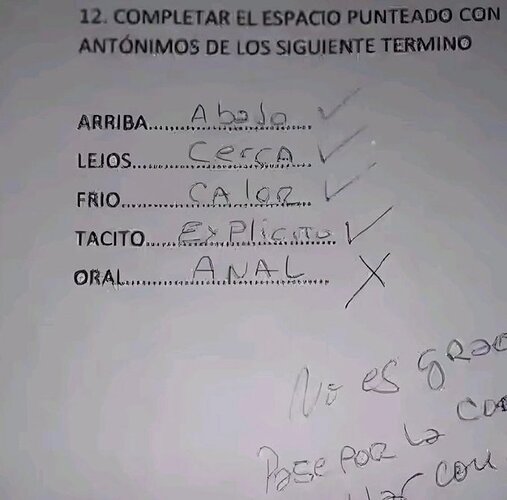 12. COMPLETAR EL ESPACIO PUNTEADO CON
ANTÓNIMOS DE LOS SIGUIENTE TERMINO
ARRIBA......Abajo
LEJOS......Cerca
FRIO......CAlOR
TACITO......Explicito
ORAL......ANAL
No es grac
Pase por la
con